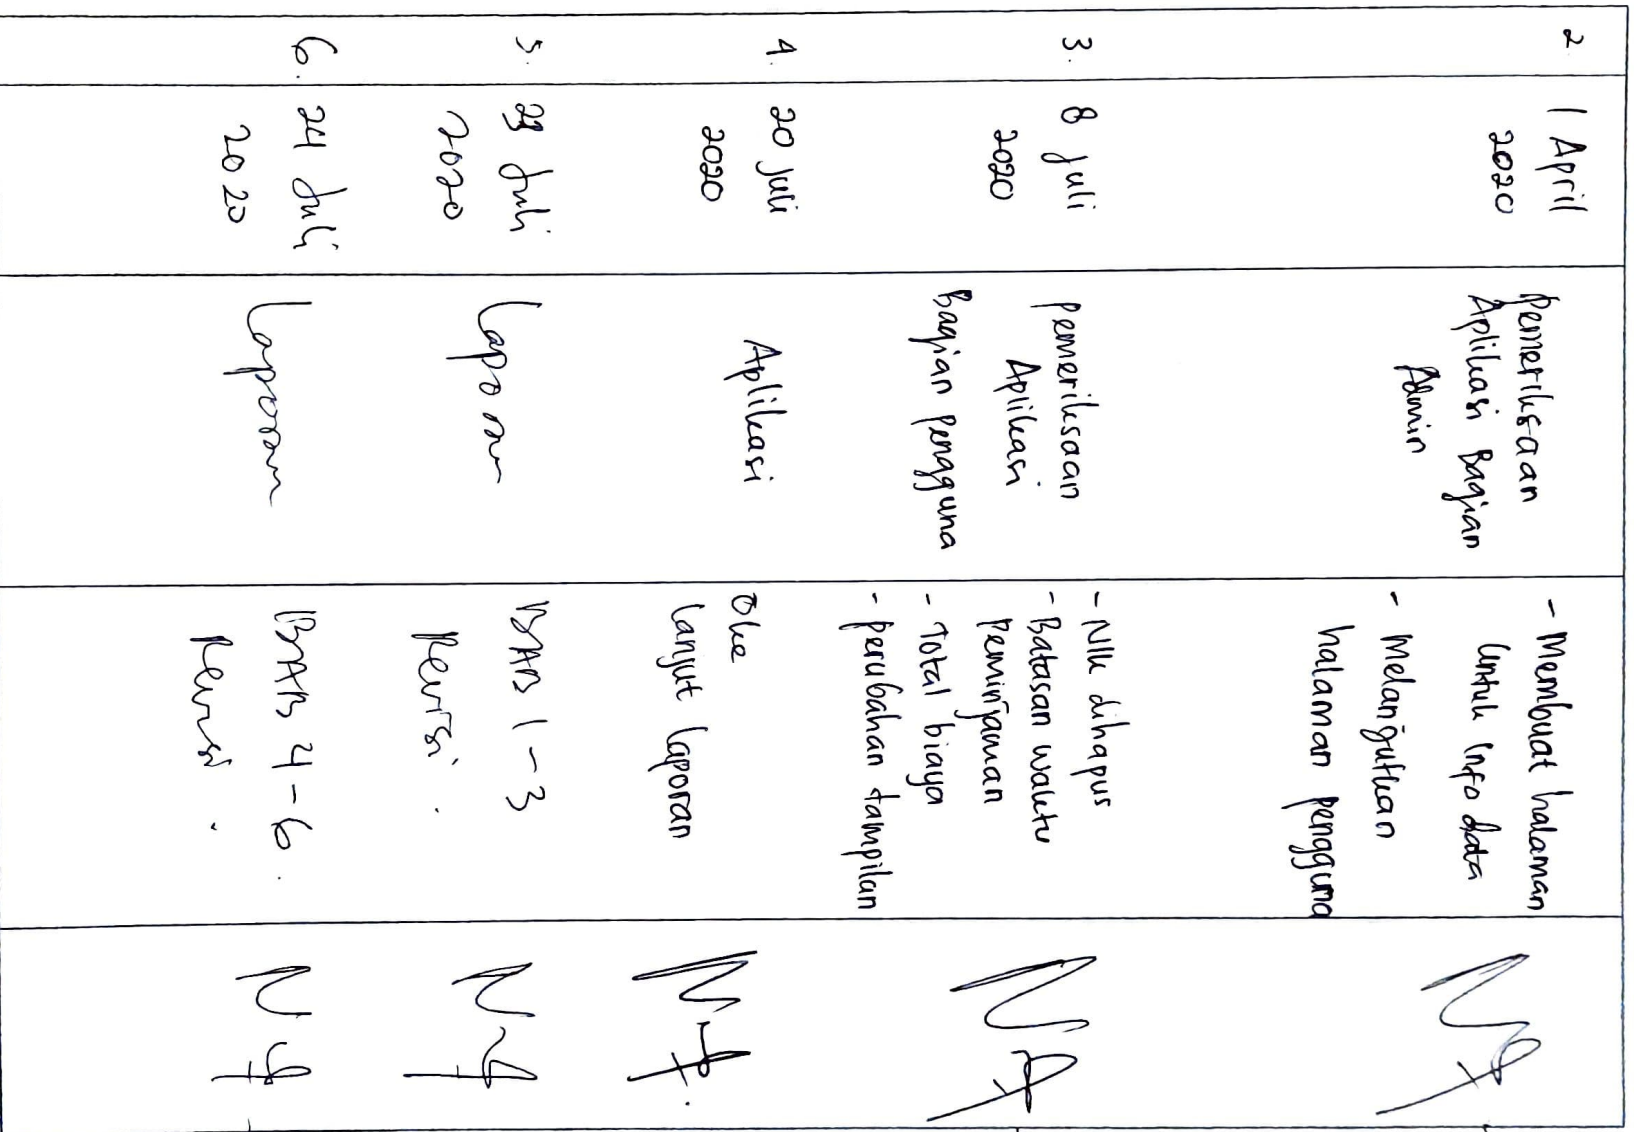 2
1 April
2020
Pemeriksaan
Aplikasi Bagian
Admin
- Membuat halaman
untuk info data
- Melanjutkan
halaman pengguna
3.
8 juli
2020
pemeriksaan
Aplikasi
Bagian pengguna
- NIK dihapus
- Batasan waktu
Peminjaman
- Total biaya
- perubahan tampilan
4.
20 juli
2020
Aplikasi
Oke
lanjut laporan
5.
Juli
2020
Laporan
BAB 1-3
Revisi.
6.
24 Juli
2020
Laporan
BAB 4-6.
Revisi.